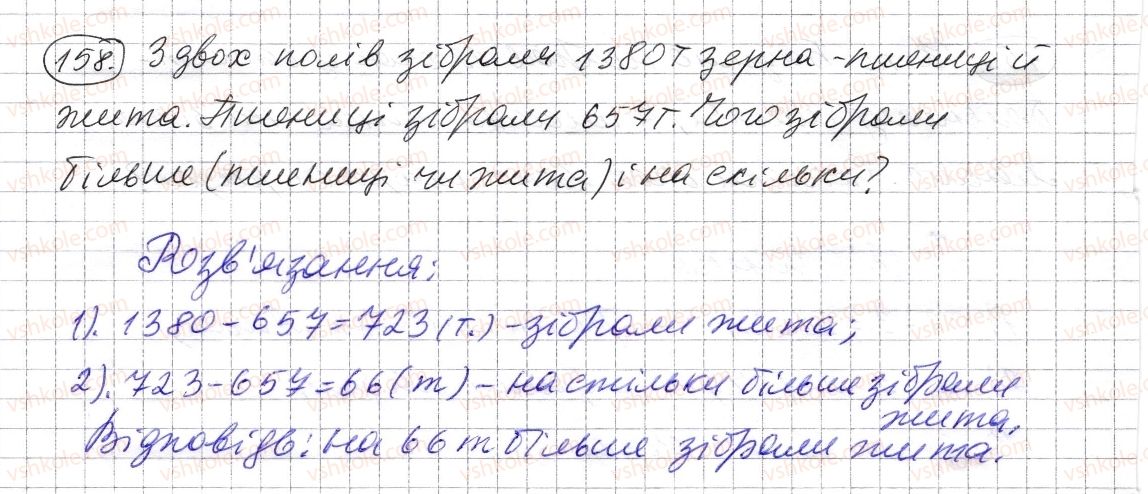 158. З двох полів зібрали 1380т зерна - пшениці й
жита. Пшениці зібрали 657т. Чого зібрали
більше (пшениці чи жита) і на скільки?
Розв'язання:
1). 1380 - 657 = 723 (т.) - зібрали жита;
2). 723 - 657 = 66 (т) - на стільки більше зібрали
жита.
Відповідь: на 66 т більше зібрали жита.